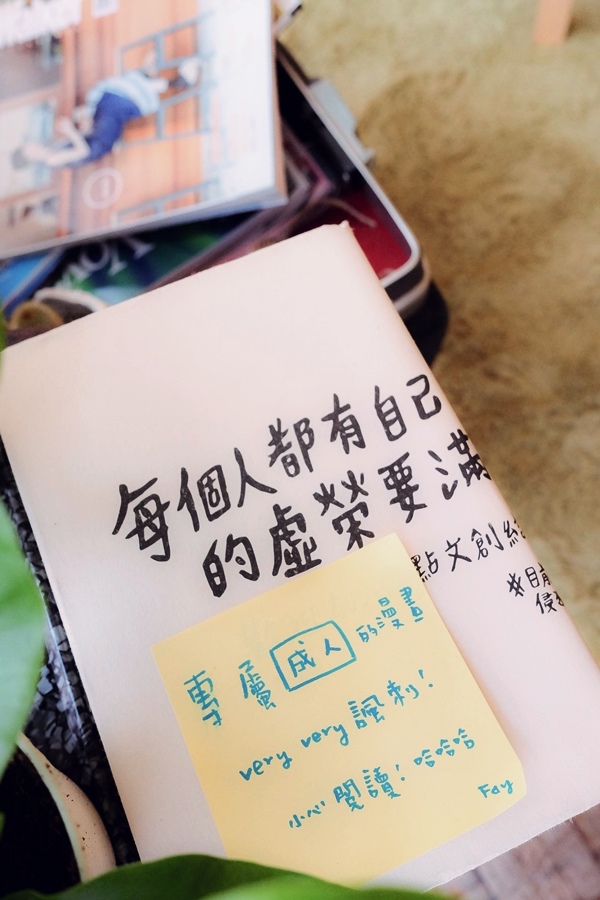 每個人都有自己
的虛榮要滿
點文創
專屬成人的漫畫
very very 諷刺!
小心閱讀!哈哈哈
Fay